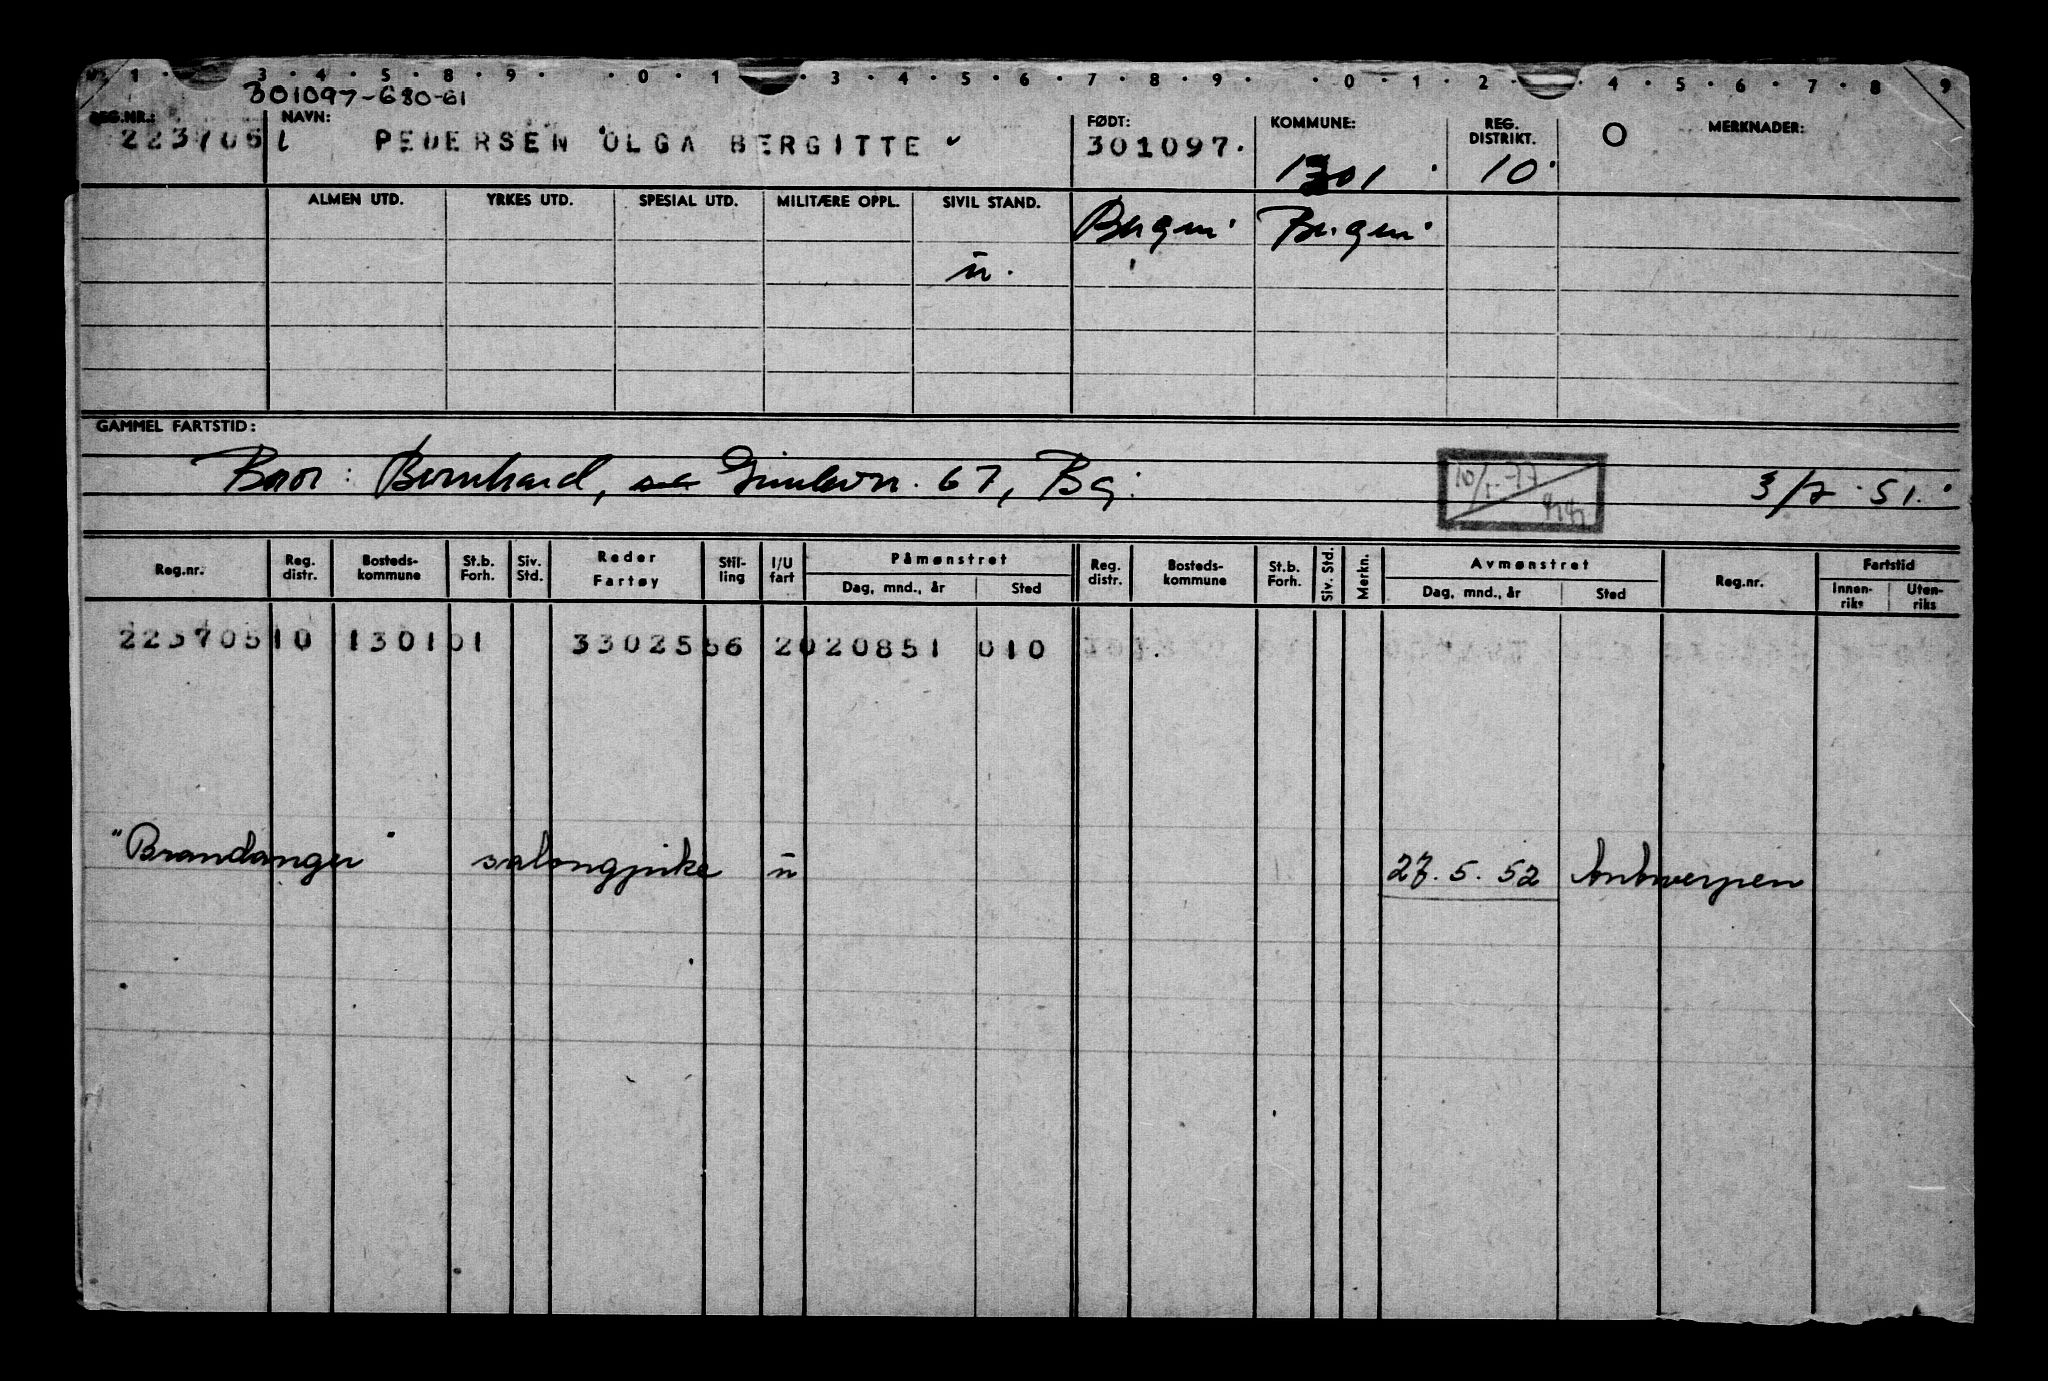 1 · 3 · 4 · 5 · 8 · 9 · · 0 · 1 · 3 · 4 · 5 · 6 · 7 · 8 · 9 · · 0 · 1 · 2 · · 4 · 5 · 6 · 7 · 8 9
301097-680-61
REG.NR.: NAVN: FØDT: KOMMUNE: REG. DISTRIKT. MERKNADER:
223706 PEDERSEN OLGA BERGITTE 301097. 1301 10
ALMEN UTD. YRKES UTD. SPESIAL UTD. MILITÆRE OPPL. SIVIL STAND. Bergen Bergen
u.
GAMMEL FARTSTID:
Bror: Bernhard, 67, Bg. 3/7.51.
Reg.nr. Reg. distr. Bosteds-kommune St.b. Forh. Siv. Std. Reder Fartøy Stil-ling I/U fart Påmønstret Reg. distr. Bosteds-kommune St.b. Forh. Siv. Std. Merkn. Avmønstret Reg.nr. Fartstid
Dag, mnd., år Sted Dag, mnd., år Sted Innen-riks Uten-riks
22370510 130101 3302556 2020851 010
"Brandanger" salongpike u 27.5.52 Antwerpen